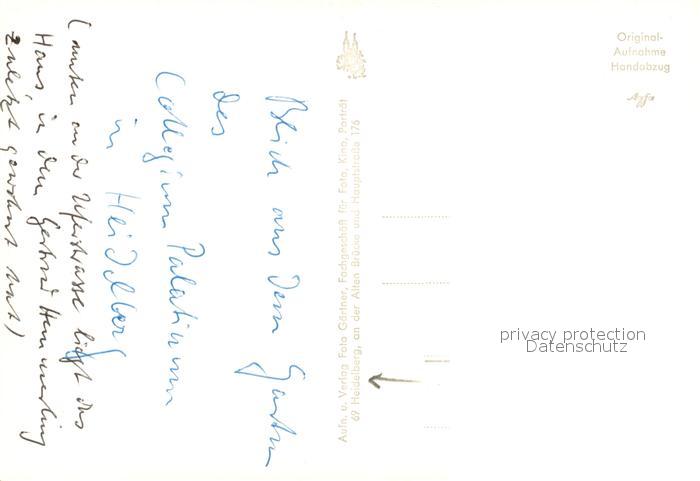 Blick aus dem Garten
des
Collegium Palatinum
in Heidelberg
(unten an der Uferstrasse liegt das
Haus, in dem Gertrud
zuletzt gewohnt hat)
Aufn. u. Verlag Foto Gärtner, Fachgeschäft für Foto, Kino, Porträt
69 Heidelberg, an der Alten Brücke und Hauptstraße 176
Original-
Aufnahme
Handabzug
privacy protection
Datenschutz